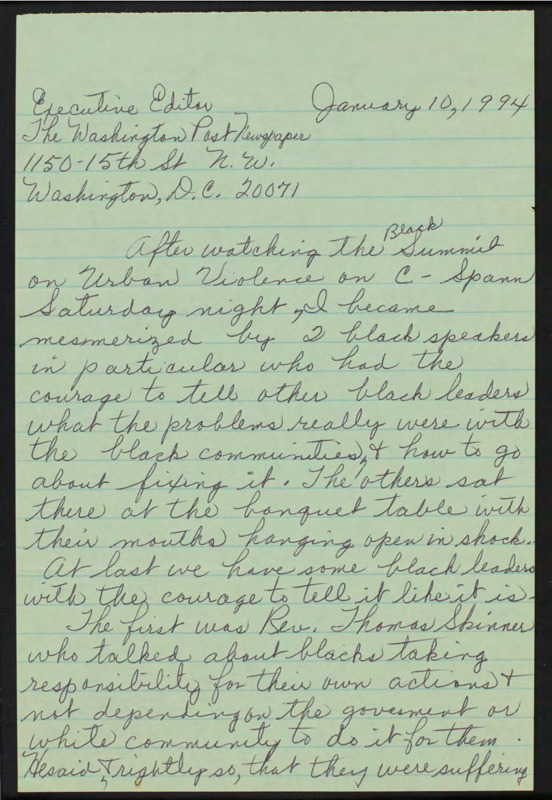 Executive Editor January 10, 1994
The Washington Post Newspaper
1150-15th St N.W.
Washington, D.C. 20071
After watching the Black Summit
on Urban Violence on C-Spann
Saturday night, I became
mesmerized by 2 black speakers
in particular who had the
courage to tell other black leaders
what the problems really were with
the black communities, & how to go
about fixing it. The others sat
there at the banquet table with
their mouths hanging open in shock.
At last we have some black leaders
with the courage to tell it like it is.
The first was Rev. Thomas Skinner
who talked about blacks taking
responsibility for their own actions &
not depending on the goverment or
white community to do it for them.
He said, & rightly so, that they were suffering